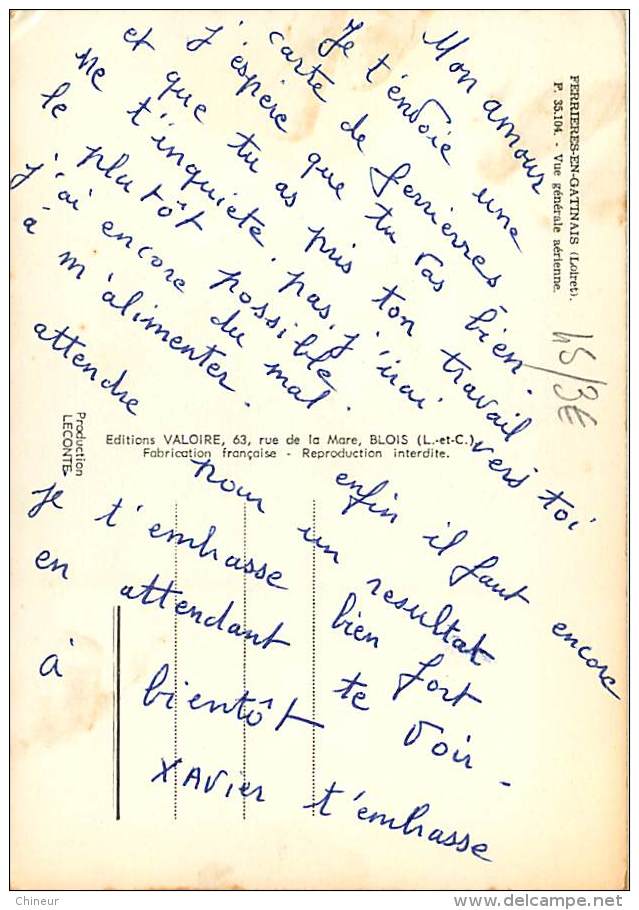 Mon amour
Je t'envoie une
carte de ferrierres
j'espère que tu vas bien.
et que tu as pris ton travail
ne t'inquiete pas, j'irai vers toi
le plutôt possible.
j'ai encore du mal
à m'alimenter.
enfin il faut encore
attendre pour un resultat
je t'embrasse bien fort
en attendant te voir -
à bientôt
XAvier t'embrasse
FERRIERES-EN-GATINAIS (Loiret).
P. 35.104. - Vue générale aérienne.
45/3€
Production
LECONTE
Editions VALOIRE, 63, rue de la Mare, BLOIS (L.-et-C.)
Fabrication française - Reproduction interdite.
Chineur
www.delcampe.net